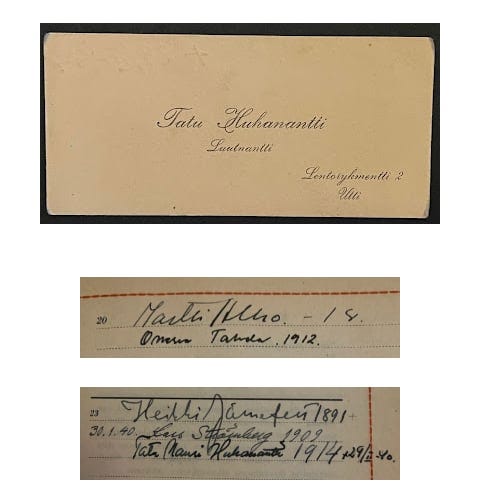 Tatu Huhanantti
Luutnantti
Lentorykmentti 2
Utti
20 Martti Alho. - 18.
1912.
23 Heikki Järnefelt 1891 +
30.1.40. Lars Strömberg 1909
Tatu Mauri Huhanantti 1914 +29/II 40.